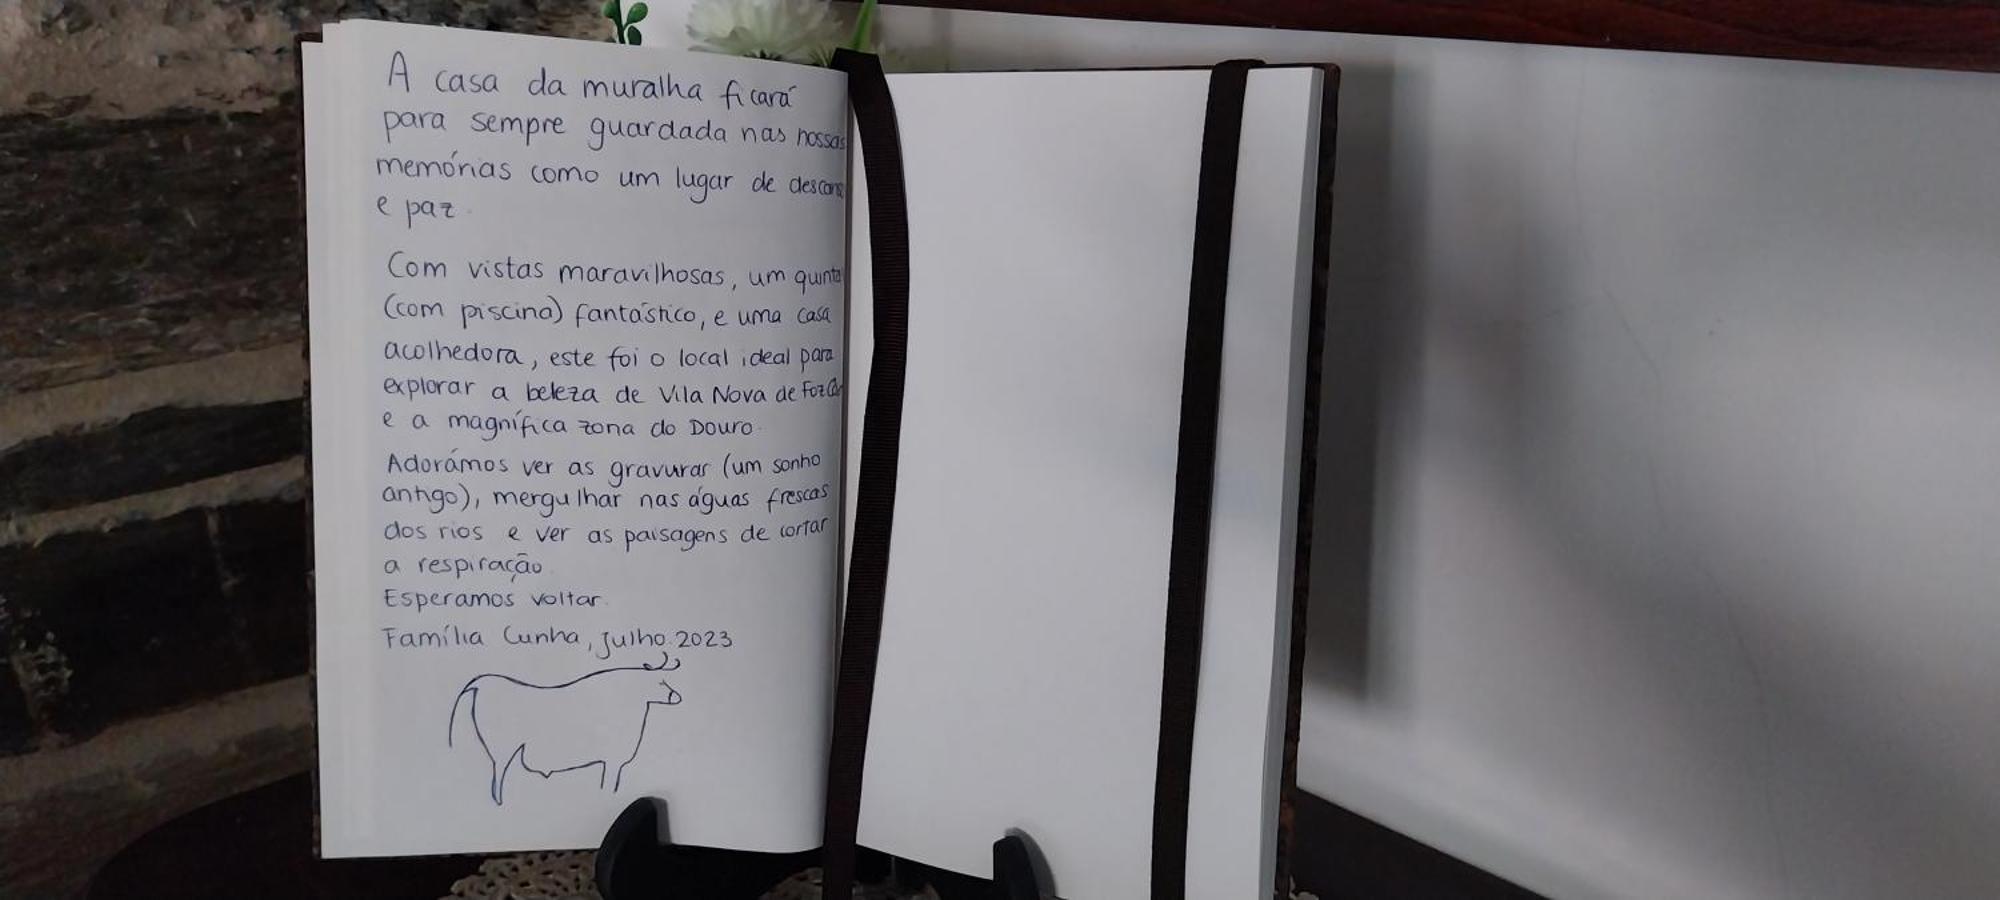 A casa da muralha ficará
para sempre guardada nas nossas
memórias como um lugar de descans
e paz.
Com vistas maravilhosas, um quinta
(com piscina) fantástico, e uma casa
acolhedora, este foi o local ideal para
explorar a beleza de Vila Nova de Foz
e a magnífica zona do Douro.
Adorámos ver as gravurar (um sonho
antigo), mergulhar nas águas frescas
dos rios e ver as paisagens de cortar
a respiração.
Esperamos voltar.
Família Cunha, Julho.2023